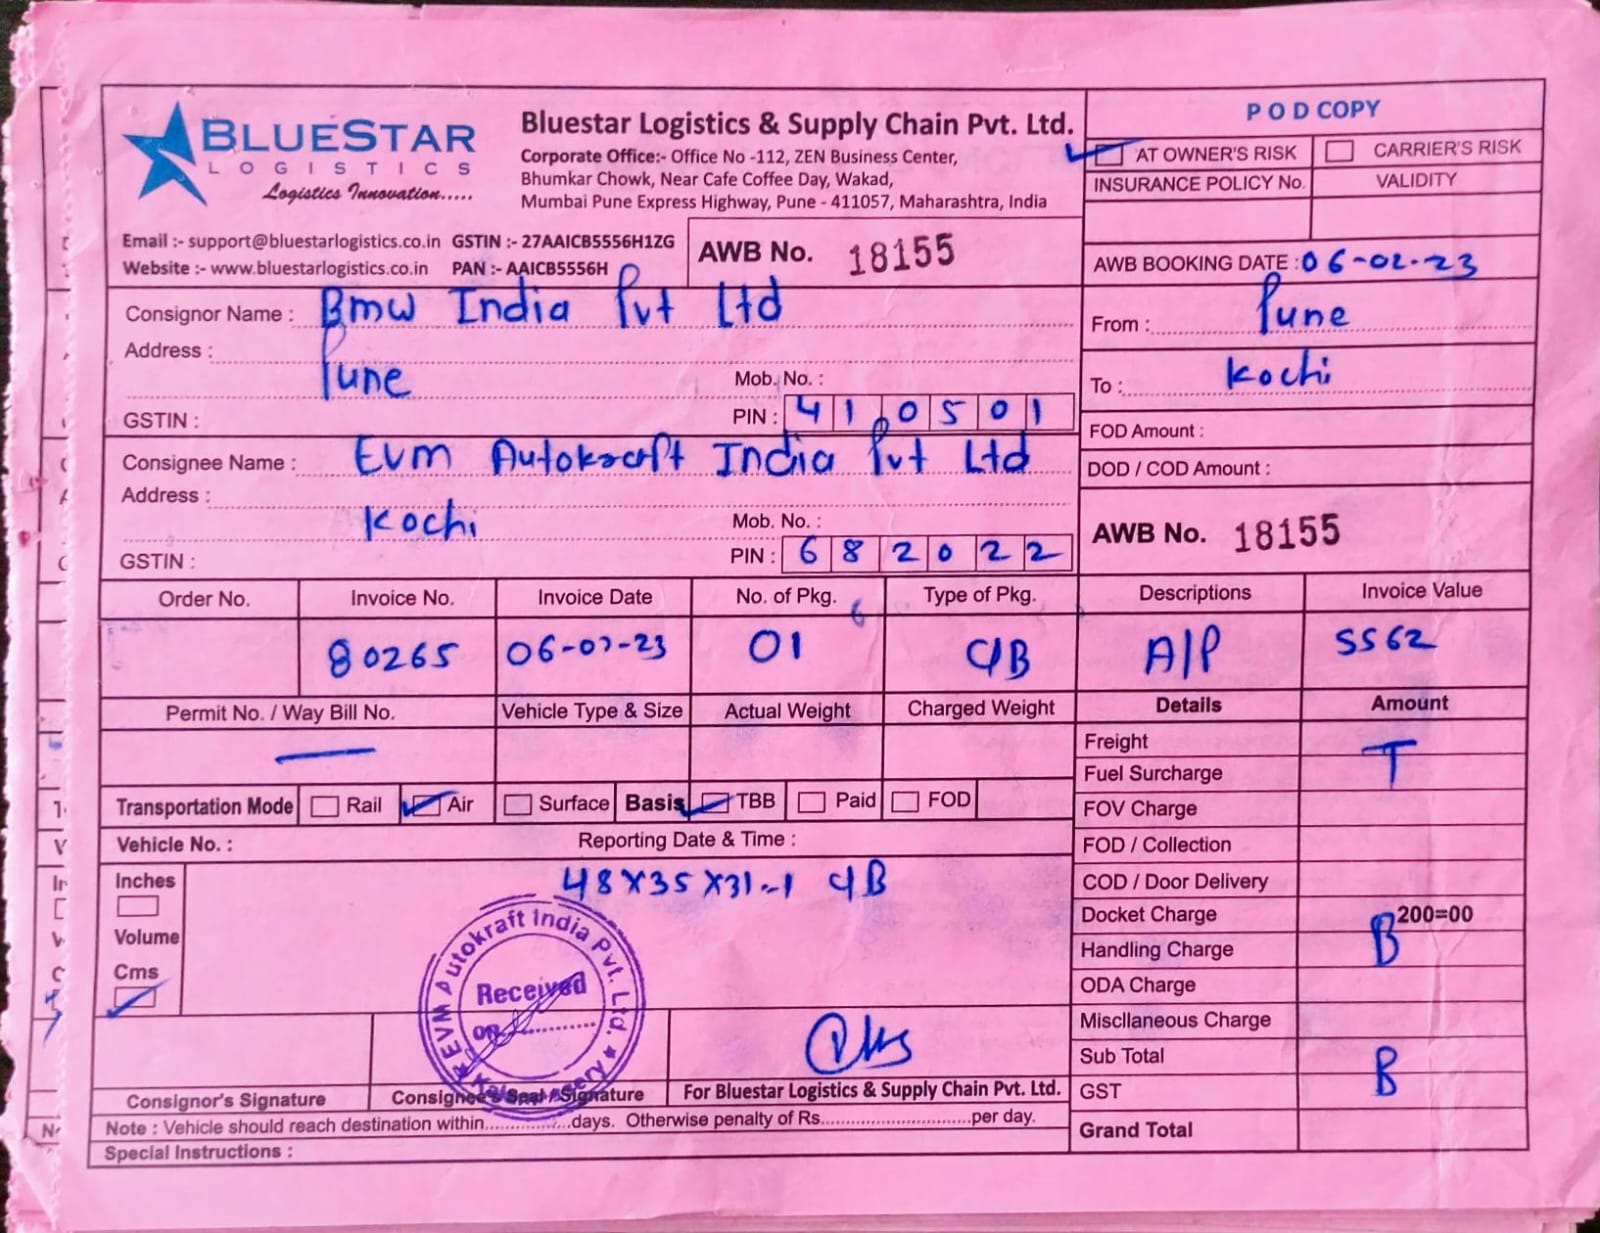 BLUESTAR
LOGISTICS
Logistics Innovation.....
Bluestar Logistics & Supply Chain Pvt. Ltd.
Corporate Office:- Office No -112, ZEN Business Center,
Bhumkar Chowk, Near Cafe Coffee Day, Wakad,
Mumbai Pune Express Highway, Pune - 411057, Maharashtra, India
Email :- support@bluestarlogistics.co.in GSTIN :- 27AAICB5556H1ZG
Website :- www.bluestarlogistics.co.in PAN :- AAICB5556H
AWB No. 18155
POD COPY
AT OWNER'S RISK CARRIER'S RISK
INSURANCE POLICY No. VALIDITY
AWB BOOKING DATE : 06-02-23
Consignor Name : Bmw India Pvt Ltd
Address :
Pune
Mob. No. :
GSTIN :
PIN : 410501
From : Pune
To : Kochi
Consignee Name : EVM Autokraft India Pvt Ltd
Address :
Kochi
Mob. No. :
GSTIN :
PIN : 682022
FOD Amount :
DOD / COD Amount :
AWB No. 18155
Order No. Invoice No. Invoice Date No. of Pkg. Type of Pkg. Descriptions Invoice Value
80265 06-02-23 01 C/B A/P 5562
Permit No. / Way Bill No. Vehicle Type & Size Actual Weight Charged Weight Details Amount
Freight
T
Fuel Surcharge
Transportation Mode Rail Air Surface Basis TBB Paid FOD
FOV Charge
Vehicle No. : Reporting Date & Time :
FOD / Collection
Inches
48x35x31-1 C/B
COD / Door Delivery
Volume
Docket Charge 200=00
B
Handling Charge
Cms
ODA Charge
EVM Autokraft India Pvt. Ltd.
Received
on
Miscllaneous Charge
Sub Total
B
Consignor's Signature Consignee's Seal / Signature For Bluestar Logistics & Supply Chain Pvt. Ltd.
GST
Note : Vehicle should reach destination within.................days. Otherwise penalty of Rs..............................per day.
Grand Total
Special Instructions :